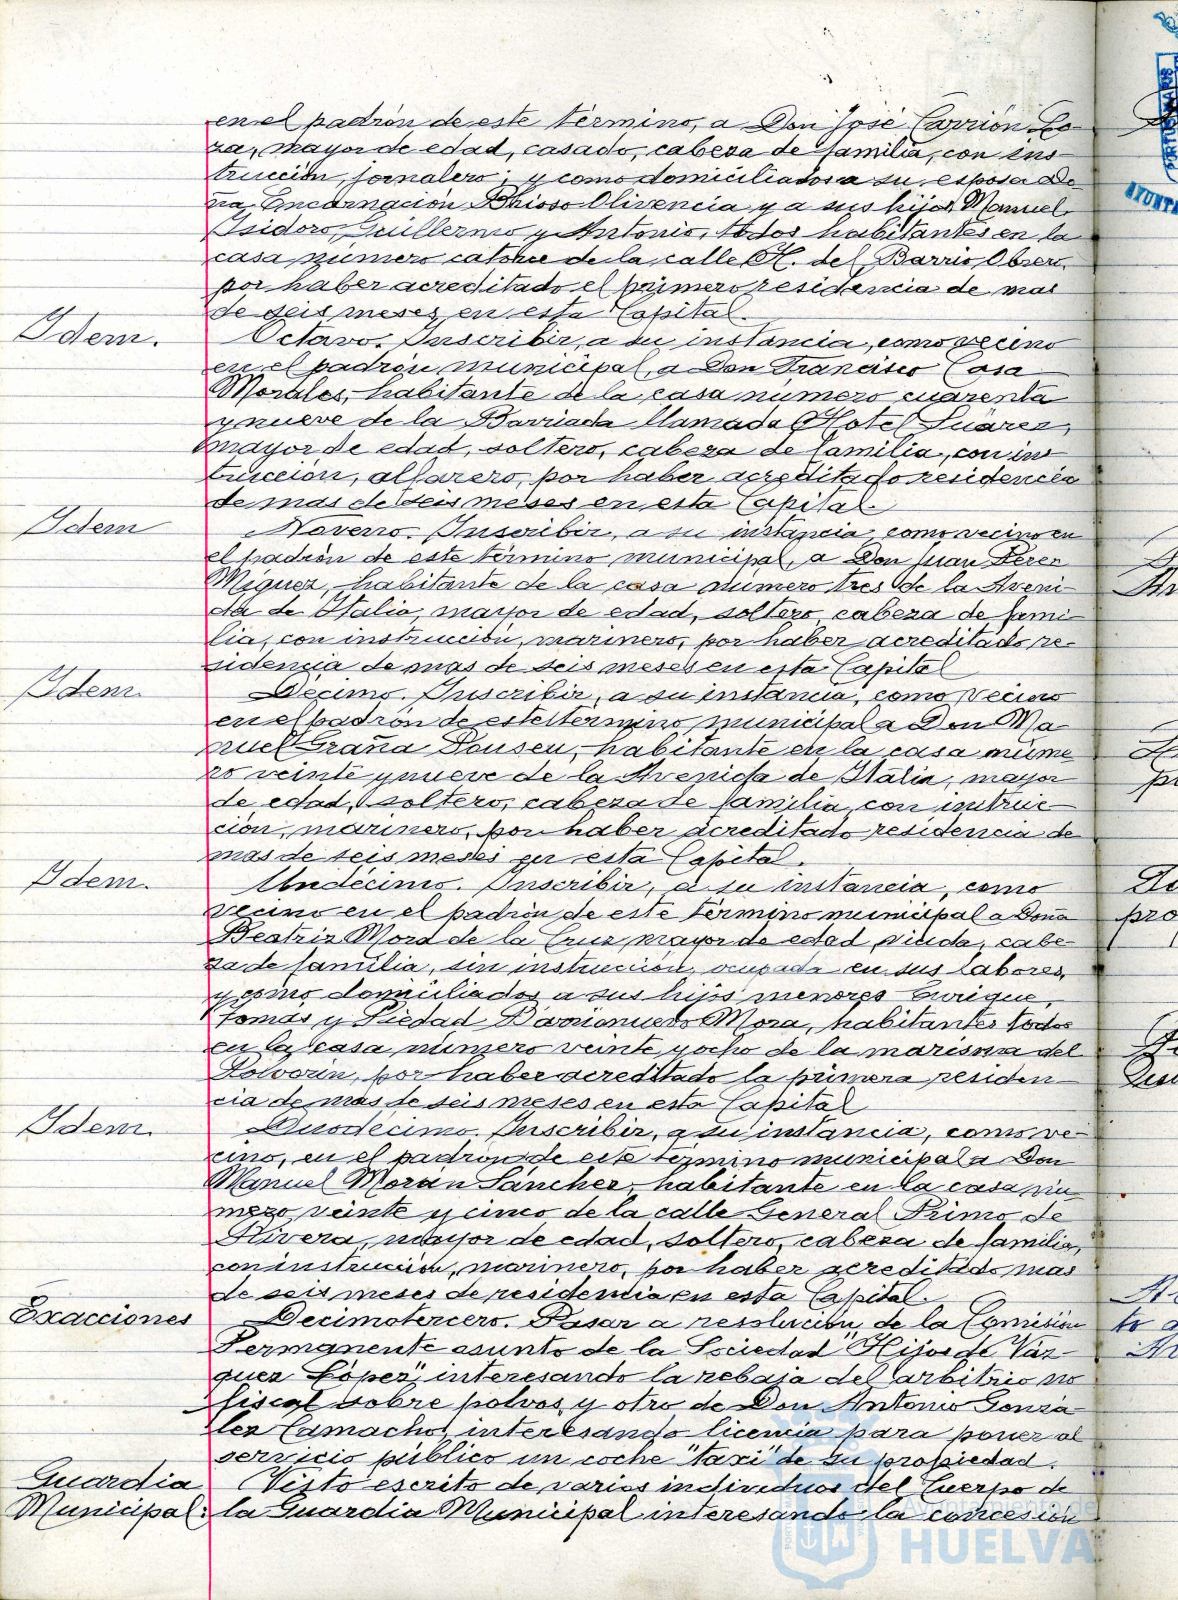 en el padrón de este término, a Don José Carrión Lo-
za, mayor de edad, casado, cabeza de familia, con ins-
trucción, jornalero; y como domiciliados a su esposa Do-
ña Encarnación Brioso Olivencia y a sus hijos Manuel,
Isidoro, Guillermo y Antonio, todos habitantes en la
casa número catorce de la calle H. del Barrio Obrero,
por haber acreditado el primero residencia de mas
de seis meses en esta Capital.
Idem.
Octavo. Inscribir, a su instancia, como vecino
en el padrón municipal, a Don Francisco Casa
Morales, habitante de la casa número cuarenta
y nueve de la Barriada llamada Hotel Suárez,
mayor de edad, soltero, cabeza de familia, con ins-
trucción, alfarero, por haber acreditado residencia
de mas de seis meses en esta Capital.
Idem
Noveno. Inscribir, a su instancia, como vecino en
el padrón de este término municipal, a Don Juan Pérez
Míguez, habitante de la casa número tres de la Aveni-
da de Italia, mayor de edad, soltero, cabeza de fami-
lia, con instrucción, marinero, por haber acreditado re-
sidencia de mas de seis meses en esta Capital
Idem.
Décimo. Inscribir, a su instancia, como vecino
en el padrón de este término municipal a Don Ma-
nuel Graña Pouseu, habitante en la casa núme
ro veinte y nueve de la Avenida de Italia, mayor
de edad, soltero, cabeza de familia, con instruc-
ción, marinero, por haber acreditado residencia de
mas de seis meses en esta Capital.
Idem.
Undécimo. Inscribir, a su instancia, como
vecino en el padrón de este término municipal a Doña
Beatriz Mora de la Cruz, mayor de edad, viuda, cabe-
za de familia, sin instrucción, ocupada en sus labores,
y como domiciliados a sus hijos menores Enrique,
Tomás y Piedad Barrionuevo Mora, habitantes todos
en la casa número veinte y ocho de la marisma del
Polvorín, por haber acreditado la primera residen-
cia de mas de seis meses en esta Capital
Idem.
Duodécimo. Inscribir, a su instancia, como ve-
cino, en el padrón de este término municipal a Don
Manuel Morán Sánchez, habitante en la casa nú-
mero veinte y cinco de la calle General Primo de
Rivera, mayor de edad, soltero, cabeza de familia,
con instrucción, marinero, por haber acreditado mas
de seis meses de residencia en esta Capital.
Exacciones
Decimotercero. Pasar a resolución de la Comisión
Permanente asunto de la Sociedad "Hijos de Váz-
quez López", interesando la rebaja del arbitrio no
fiscal sobre polvos, y otro de Don Antonio Gonzá-
lez Camacho, interesando licencia para poner al
servicio público un coche "taxi" de su propiedad.
Guardia
Municipal.
Visto escrito de varios individuos del Cuerpo de
la Guardia Municipal interesando la concesión
Ayuntamiento de
HUELVA